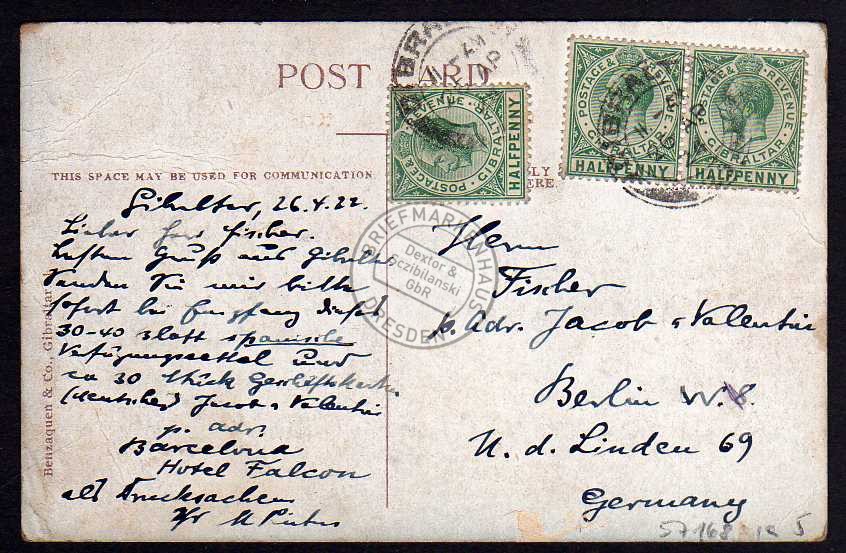 POST CARD
THIS SPACE MAY BE USED FOR COMMUNICATION.
Gibraltar, 26.4.22.
Lieber Herr Fischer.
Besten Gruß aus Gibraltar
Senden Sie mir bitte
sofort bei Empfang dieses
30-40 Blatt spanische
Verfügungszettel und
ca 30 Stück Geschäftskarten
(deutsche) Jacob & Valentin
p. adr.
Barcelona
Hotel Falcon
als Drucksachen
Herrn
Fischer
p. Adr. Jacob & Valentin
Berlin W. 8.
U. d. Linden 69
Germany
57168
5
Benzaquen & Co., Gibraltar
POSTAGE & REVENUE
GIBRALTAR
HALFPENNY
POSTAGE & REVENUE
GIBRALTAR
HALFPENNY
POSTAGE & REVENUE
GIBRALTAR
HALFPENNY
BRIEFMARKENHAUS
Dextor &
Sczibilanski
GbR
DRESDEN